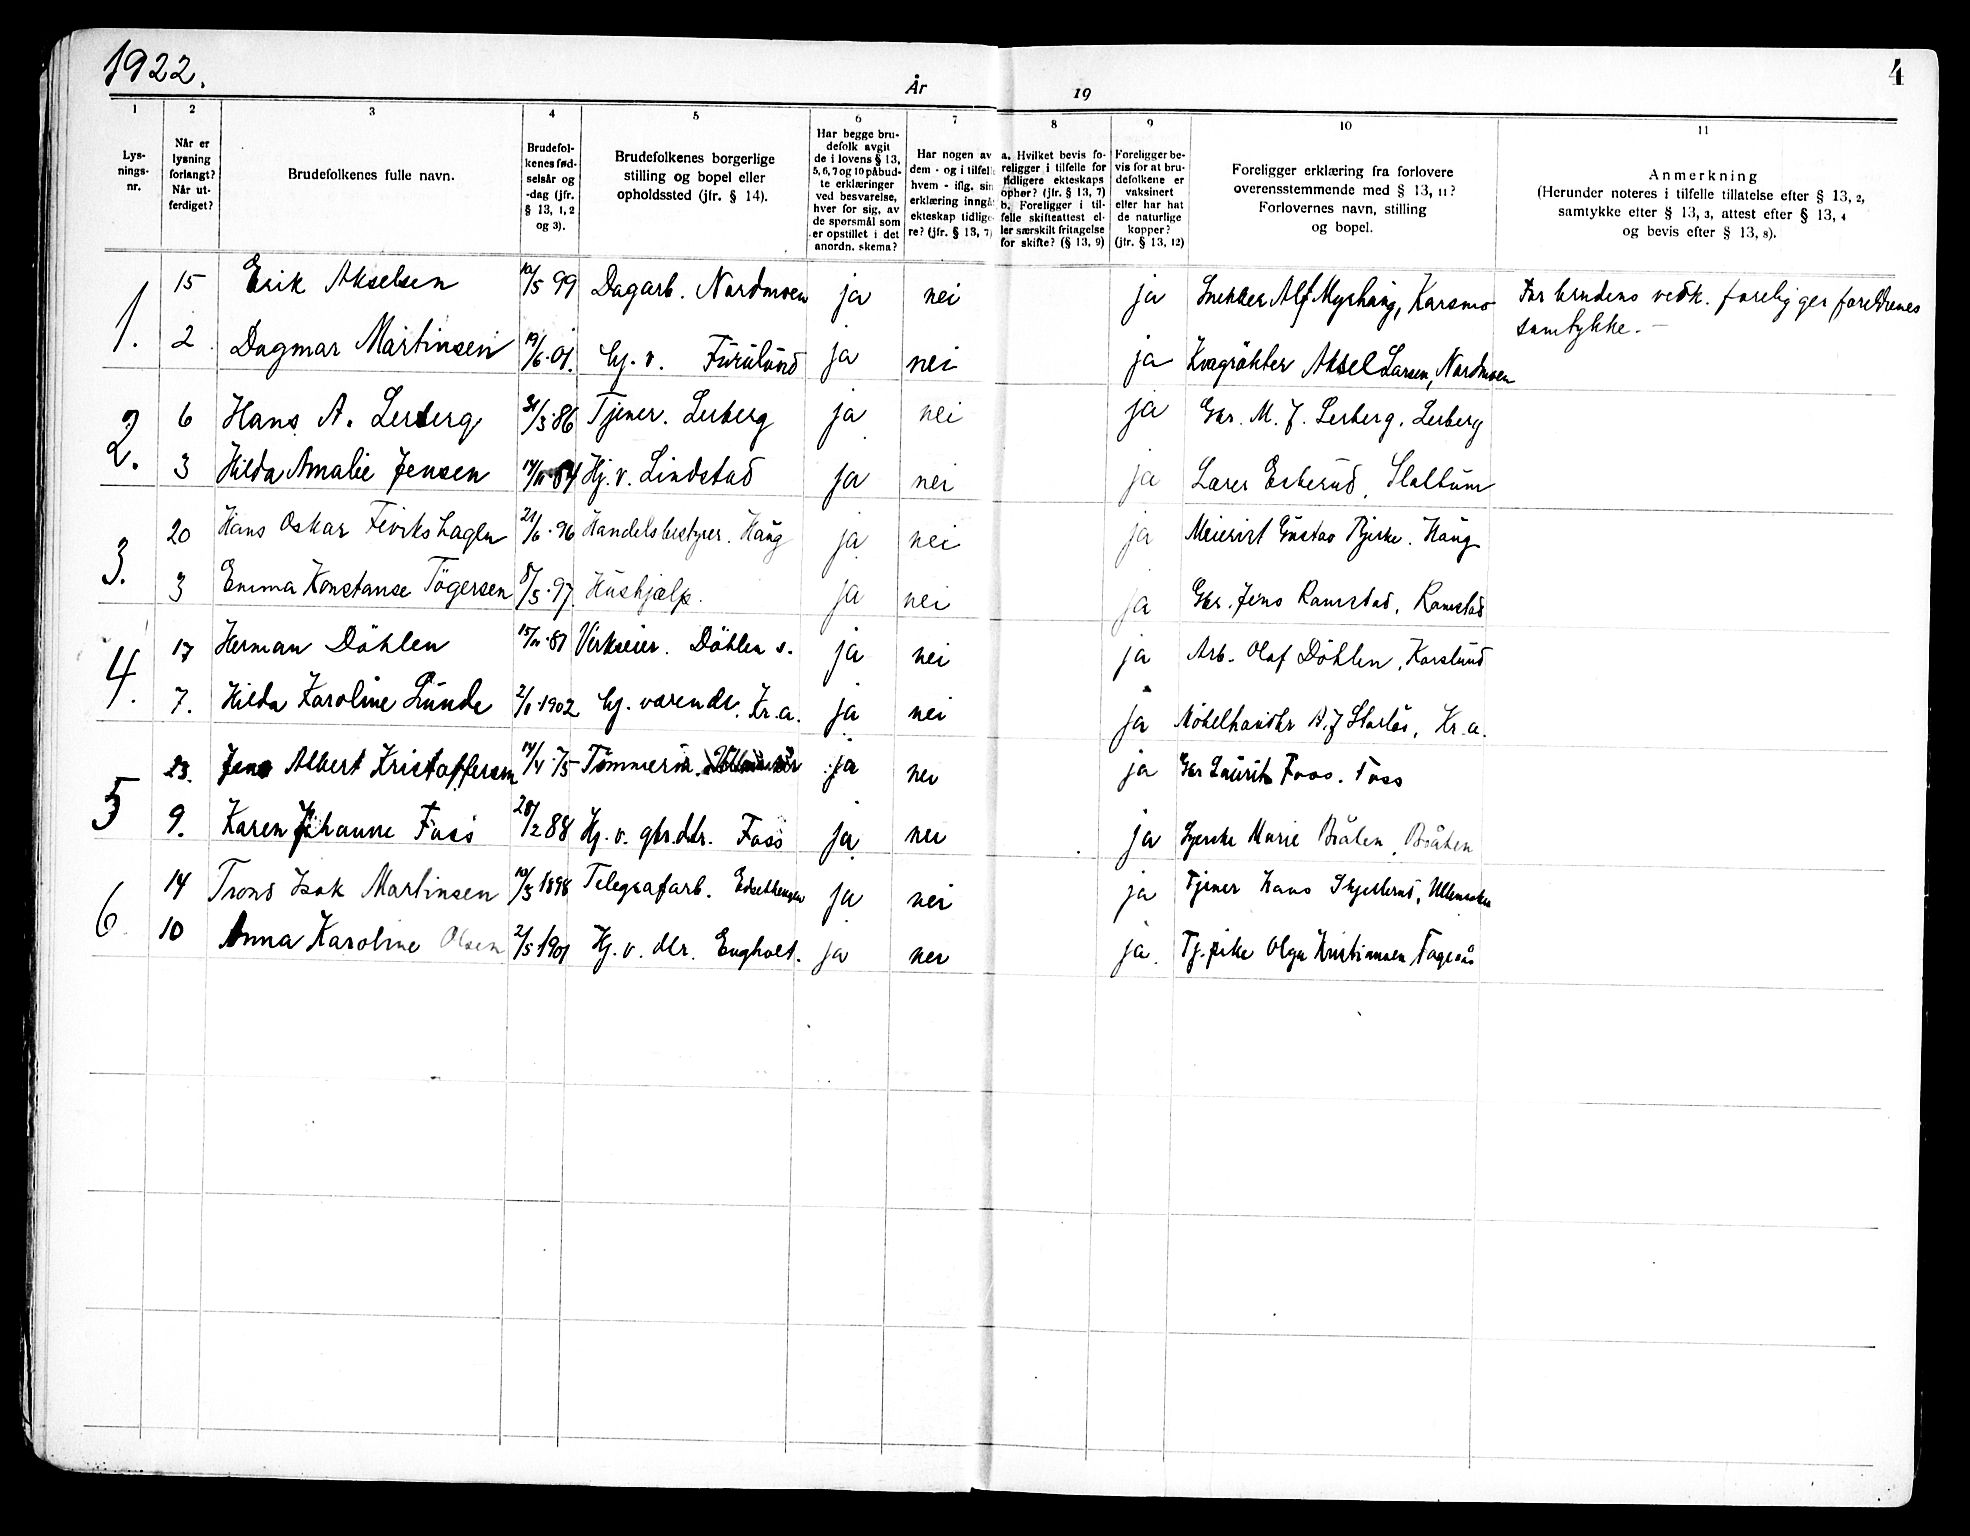 1922.
År 19
4
1 2 3 4 5 6 7 8 9 10 11
Lys-
nings-
nr.
Når er
lysning
forlangt?
Når ut-
ferdiget?
Brudefolkenes fulle navn.
Brudefol-
kenes fød-
selsår og
-dag (jfr.
§ 13, 1, 2
og 3).
Brudefolkenes borgerlige
stilling og bopel eller
opholdssted (jfr. § 14).
Har begge bru-
defolk avgit
de i lovens § 13,
5, 6, 7 og 10 påbud-
te erklæringer
ved besvarelse,
hver for sig, av
de spørsmål som
er opstillet i det
anordn. skema?
Har nogen av
dem - og i tilfelle
hvem - iflg. sin
erklæring inngåt
ekteskap tidlige-
re? (jfr. § 13, 7)
a. Hvilket bevis fo-
religger i tilfelle for
tidligere ekteskaps
ophør? (jfr. § 13, 7)
b. Foreligger i til-
felle skifteattest el-
ler særskilt fritagelse
for skifte? (§ 13, 9)
Foreligger be-
vis for at bru-
defolkene er
vaksinert
eller har hat
de naturlige
kopper?
(jfr. § 13, 12)
Foreligger erklæring fra forlovere
overensstemmende med § 13, 11?
Forlovernes navn, stilling
og bopel.
Anmerkning
(Herunder noteres i tilfelle tillatelse efter § 13, 2,
samtykke efter § 13, 3, attest efter § 13, 4
og bevis efter § 13, 8).
1. 15 Erik Akselsen 10/5 99 Dagarb. Nordmoen ja nei ja Snekker Alf Myrhaug, Karsmo For brudens vedk. foreligger foreldrenes
samtykke. —
2 Dagmar Martinsen 19/6.01. hj. v. Furulund ja nei ja Kvægrøkter Aksel Larsen, Nordmoen
2. 6 Hans A. Lerberg 31/3.86 Tjener. Lerberg ja nei ja Gbr. M. J. Lerberg, Lerberg
3 Hilda Amalie Jensen 84 Hj. v. Lindstad ja nei ja Lærer Esberud, Slattum
3. 20 Hans Oskar 21/6.96 Handelsbestyrer. Haug ja nei ja Meierist Gustav Bjerke. Haug
3 Emma Konstanse Tøgersen 8/5.97. Hushjælp. ja nei ja Gbr. Jens Ramstad, Ramstad
4. 17 Herman Døhlen Verkseier. Døhlen s. ja nei ja Arb. Olaf Døhlen, Karslund
7. Hilda Karoline Lunde 1902 hj. værende. Kr.a. ja nei ja Møbelhandlr Kr.a.
5 23. Jens Albert Kristoffersen 14/4.75 Tømmerm. ja nei ja Gbr Laurits Foss. Foss
9. Karen Johanne Foss 28/2 88 Hj. v. gbr.dtr. Foss ja nei ja Syerske Marie Bråten, Bråten
6. 14 Trond Isak Martinsen 10/3 1898 Telegrafarb. ja nei ja Tjener Hans
10 Anna Karoline Olsen 2/5 1901 Hj. v. dtr. Engholt. ja nei ja. Tj. pike Olga Kristiansen Fagerås